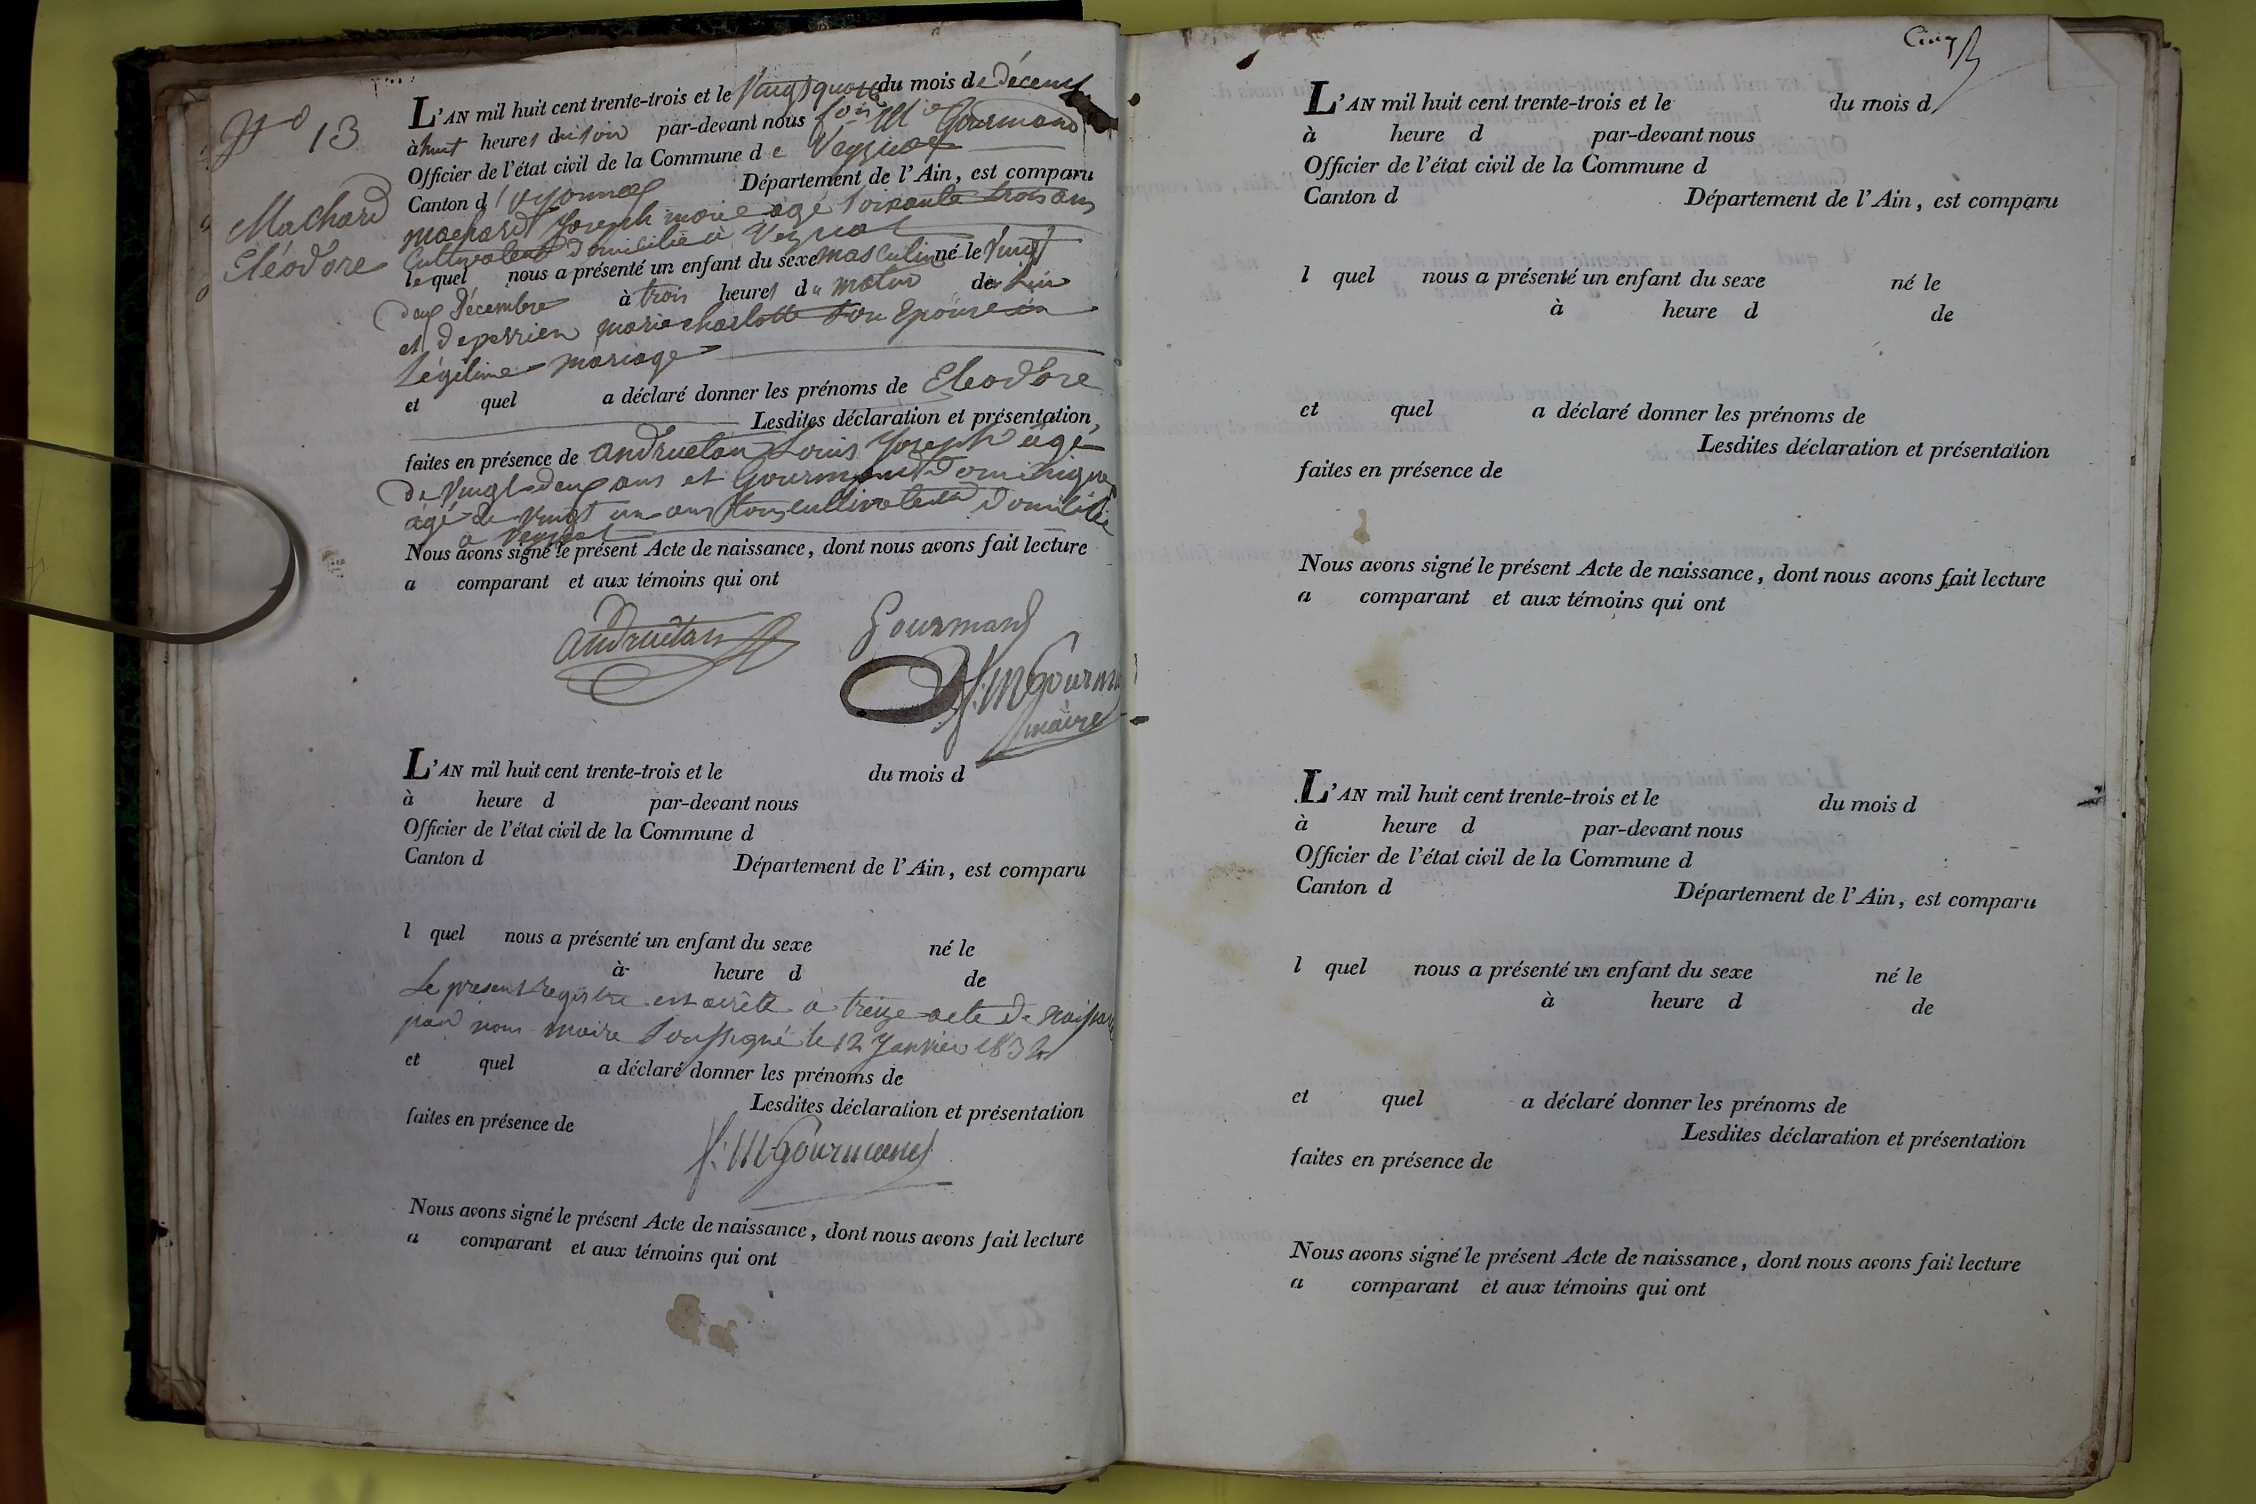 N° 13
Machard
Eléodore
L'AN mil huit cent trente-trois et le Vingt quatre du mois de Décemb
à huit heures du soir par-devant nous Gourmand
Officier de l'état civil de la Commune de Veyziat
Canton d'Oyonnax Département de l'Ain, est comparu
machard Joseph marie agé soixante trois ans
Cultivateur domicilié à Veyziat
lequel nous a présenté un enfant du sexe masculin né le Vingt
deux Décembre à trois heures du matin de lui
et marie charlotte son Epouse en
Légitime mariage
et quel a déclaré donner les prénoms de Eleodore
Lesdites déclaration et présentation,
faites en présence de andruetan Louis Joseph agé
de Vingt deux ans et Gourmand Dominique
agé de vingt un ans tous cultivateur domicilié
a Veyziat
Nous avons signé le présent Acte de naissance, dont nous avons fait lecture
a comparant et aux témoins qui ont
andruétan Gourmand
f. m Gourm
maire
L'AN mil huit cent trente-trois et le du mois d
à heure d par-devant nous
Officier de l'état civil de la Commune d
Canton d Département de l'Ain, est comparu
l quel nous a présenté un enfant du sexe né le
à heure d de
Le present registre est arrêté à treize acte de naissance
par nous maire soussigné le 12 Janvier 1834
et quel a déclaré donner les prénoms de
Lesdites déclaration et présentation
faites en présence de
f. m Gourmand
Nous avons signé le présent Acte de naissance, dont nous avons fait lecture
a comparant et aux témoins qui ont
Cinq
L'AN mil huit cent trente-trois et le du mois d
à heure d par-devant nous
Officier de l'état civil de la Commune d
Canton d Département de l'Ain, est comparu
l quel nous a présenté un enfant du sexe né le
à heure d de
et quel a déclaré donner les prénoms de
Lesdites déclaration et présentation
faites en présence de
Nous avons signé le présent Acte de naissance, dont nous avons fait lecture
a comparant et aux témoins qui ont
L'AN mil huit cent trente-trois et le du mois d
à heure d par-devant nous
Officier de l'état civil de la Commune d
Canton d Département de l'Ain, est comparu
l quel nous a présenté un enfant du sexe né le
à heure d de
et quel a déclaré donner les prénoms de
Lesdites déclaration et présentation
faites en présence de
Nous avons signé le présent Acte de naissance, dont nous avons fait lecture
a comparant et aux témoins qui ont